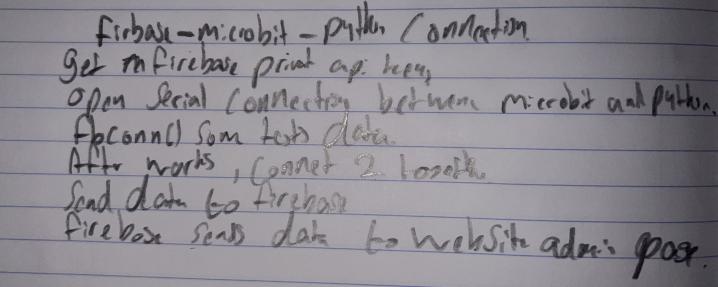 firbase-microbit-python Connection
get firebase privat api key,
open Serial Connection between microbit and python.
fbconn() som tests data.
After works, Connet 2 togeth.
Send data to firebase
firebase sends data to website admin page.